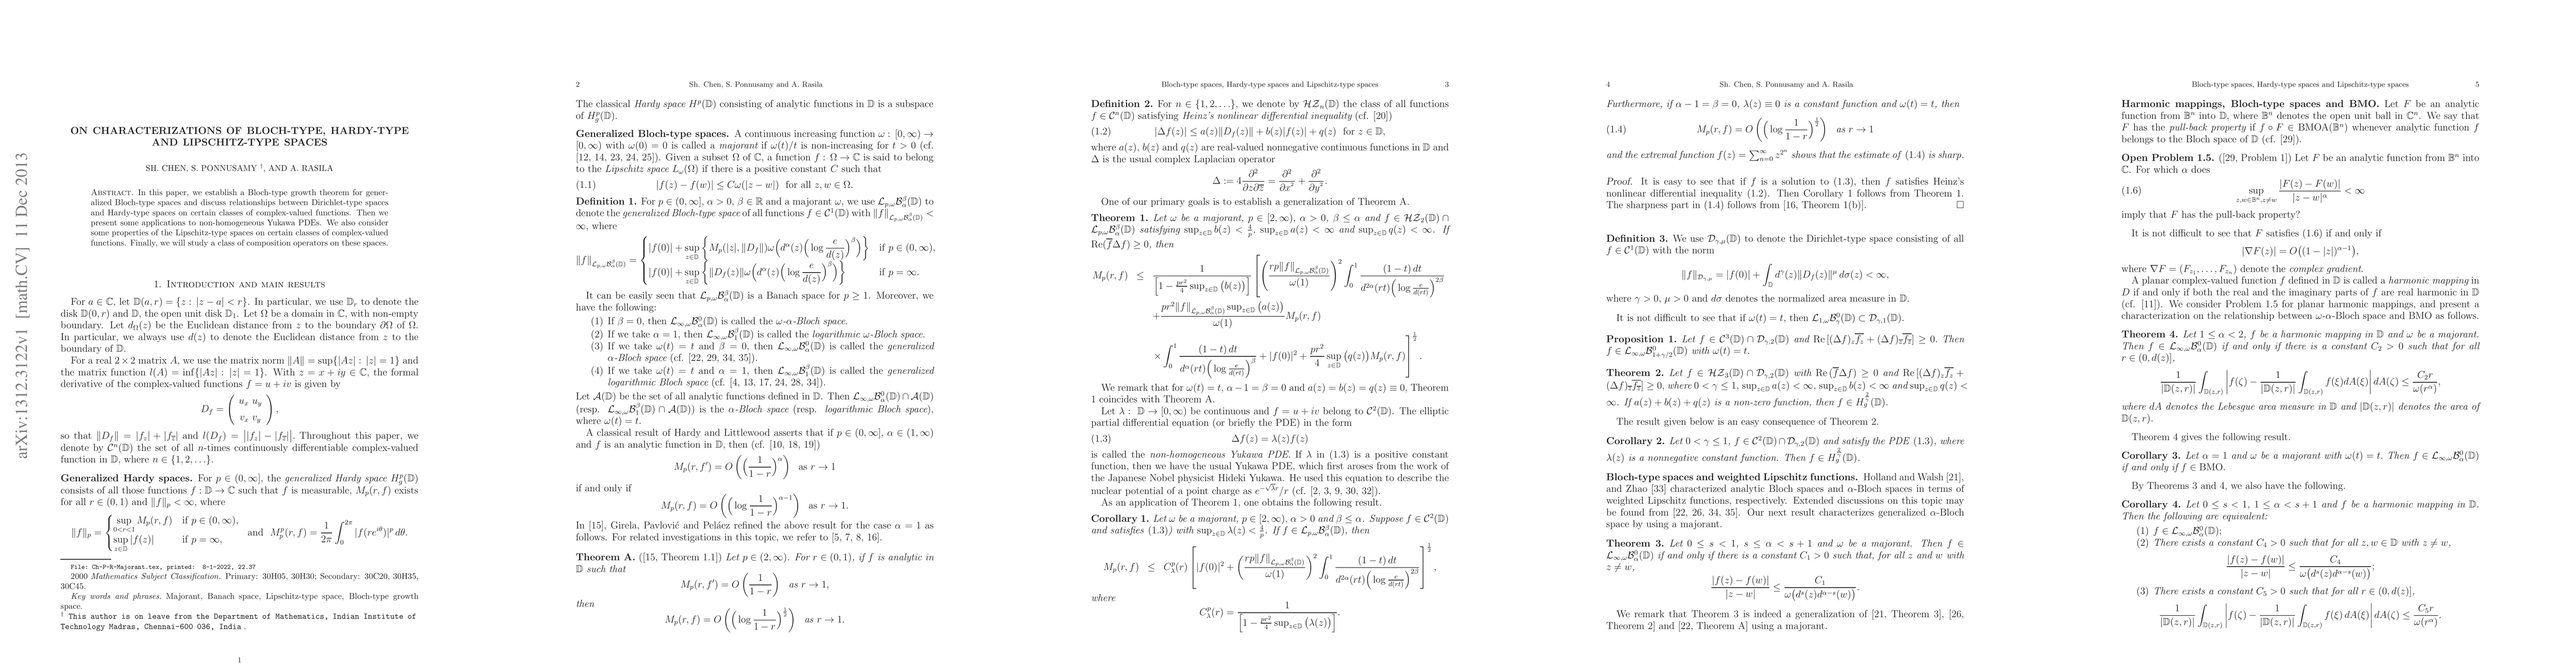 arXiv:1312.3122v1 [math.CV] 11 Dec 2013
ON CHARACTERIZATIONS OF BLOCH-TYPE, HARDY-TYPE
AND LIPSCHITZ-TYPE SPACES
SH. CHEN, S. PONNUSAMY †, AND A. RASILA
Abstract. In this paper, we establish a Bloch-type growth theorem for gener-
alized Bloch-type spaces and discuss relationships between Dirichlet-type spaces
and Hardy-type spaces on certain classes of complex-valued functions. Then we
present some applications to non-homogeneous Yukawa PDEs. We also consider
some properties of the Lipschitz-type spaces on certain classes of complex-valued
functions. Finally, we will study a class of composition operators on these spaces.
1. Introduction and main results
For a ∈ ℂ, let 𝔻(a, r) = {z : |z − a| < r}. In particular, we use 𝔻_r to denote the
disk 𝔻(0, r) and 𝔻, the open unit disk 𝔻_1. Let Ω be a domain in ℂ, with non-empty
boundary. Let d_Ω(z) be the Euclidean distance from z to the boundary ∂Ω of Ω.
In particular, we always use d(z) to denote the Euclidean distance from z to the
boundary of 𝔻.
For a real 2 × 2 matrix A, we use the matrix norm ‖A‖ = sup{|Az| : |z| = 1} and
the matrix function l(A) = inf{|Az| : |z| = 1}. With z = x + iy ∈ ℂ, the formal
derivative of the complex-valued functions f = u + iv is given by
D_f = ( u_x u_y
v_x v_y ),
so that ‖D_f‖ = |f_z| + |f_z̄| and l(D_f) = ||f_z| − |f_z̄||. Throughout this paper, we
denote by 𝒞^n(𝔻) the set of all n-times continuously differentiable complex-valued
function in 𝔻, where n ∈ {1, 2, . . .}.
Generalized Hardy spaces. For p ∈ (0, ∞], the generalized Hardy space H^p_g(𝔻)
consists of all those functions f : 𝔻 → ℂ such that f is measurable, M_p(r, f) exists
for all r ∈ (0, 1) and ‖f‖_p < ∞, where
‖f‖_p = { sup_{0<r<1} M_p(r, f) if p ∈ (0, ∞), sup_{z∈𝔻} |f(z)| if p = ∞, and M_p^p(r, f) = 1/2π ∫_0^{2π} |f(re^{iθ})|^p dθ.
File: Ch-P-R-Majorant.tex, printed: 8-1-2022, 22.37
2000 Mathematics Subject Classification. Primary: 30H05, 30H30; Secondary: 30C20, 30H35,
30C45.
Key words and phrases. Majorant, Banach space, Lipschitz-type space, Bloch-type growth
space.
† This author is on leave from the Department of Mathematics, Indian Institute of
Technology Madras, Chennai-600 036, India .
1
2 Sh. Chen, S. Ponnusamy and A. Rasila
The classical Hardy space H^p(𝔻) consisting of analytic functions in 𝔻 is a subspace
of H^p_g(𝔻).
Generalized Bloch-type spaces. A continuous increasing function ω : [0, ∞) →
[0, ∞) with ω(0) = 0 is called a majorant if ω(t)/t is non-increasing for t > 0 (cf.
[12, 14, 23, 24, 25]). Given a subset Ω of ℂ, a function f : Ω → ℂ is said to belong
to the Lipschitz space L_ω(Ω) if there is a positive constant C such that
(1.1) |f(z) − f(w)| ≤ Cω(|z − w|) for all z, w ∈ Ω.
Definition 1. For p ∈ (0, ∞], α > 0, β ∈ ℝ and a majorant ω, we use ℒ_{p,ω}ℬ_α^β(𝔻) to
denote the generalized Bloch-type space of all functions f ∈ 𝒞^1(𝔻) with ‖f‖_{ℒ_{p,ω}ℬ_α^β(𝔻)} <
∞, where
‖f‖_{ℒ_{p,ω}ℬ_α^β(𝔻)} = { |f(0)| + sup_{z∈𝔻} { M_p(|z|, ‖D_f‖)ω(d^α(z)(log e/d(z))^β) } if p ∈ (0, ∞),
|f(0)| + sup_{z∈𝔻} { ‖D_f(z)‖ω(d^α(z)(log e/d(z))^β) } if p = ∞.
It can be easily seen that ℒ_{p,ω}ℬ_α^β(𝔻) is a Banach space for p ≥ 1. Moreover, we
have the following:
(1) If β = 0, then ℒ_{∞,ω}ℬ_α^0(𝔻) is called the ω-α-Bloch space.
(2) If we take α = 1, then ℒ_{∞,ω}ℬ_1^β(𝔻) is called the logarithmic ω-Bloch space.
(3) If we take ω(t) = t and β = 0, then ℒ_{∞,ω}ℬ_α^0(𝔻) is called the generalized
α-Bloch space (cf. [22, 29, 34, 35]).
(4) If we take ω(t) = t and α = 1, then ℒ_{∞,ω}ℬ_1^β(𝔻) is called the generalized
logarithmic Bloch space (cf. [4, 13, 17, 24, 28, 34]).
Let 𝒜(𝔻) be the set of all analytic functions defined in 𝔻. Then ℒ_{∞,ω}ℬ_α^0(𝔻) ∩ 𝒜(𝔻)
(resp. ℒ_{∞,ω}ℬ_1^β(𝔻) ∩ 𝒜(𝔻)) is the α-Bloch space (resp. logarithmic Bloch space),
where ω(t) = t.
A classical result of Hardy and Littlewood asserts that if p ∈ (0, ∞], α ∈ (1, ∞)
and f is an analytic function in 𝔻, then (cf. [10, 18, 19])
M_p(r, f′) = O((1/(1 − r))^α) as r → 1
if and only if
M_p(r, f) = O((log 1/(1 − r))^{α−1}) as r → 1.
In [15], Girela, Pavlović and Peláez refined the above result for the case α = 1 as
follows. For related investigations in this topic, we refer to [5, 7, 8, 16].
Theorem A. ([15, Theorem 1.1]) Let p ∈ (2, ∞). For r ∈ (0, 1), if f is analytic in
𝔻 such that
M_p(r, f′) = O(1/(1 − r)) as r → 1,
then
M_p(r, f) = O((log 1/(1 − r))^{1/2}) as r → 1.
Bloch-type spaces, Hardy-type spaces and Lipschitz-type spaces 3
Definition 2. For n ∈ {1, 2, . . .}, we denote by ℋ𝒵_n(𝔻) the class of all functions
f ∈ 𝒞^n(𝔻) satisfying Heinz's nonlinear differential inequality (cf. [20])
(1.2) |Δf(z)| ≤ a(z)‖D_f(z)‖ + b(z)|f(z)| + q(z) for z ∈ 𝔻,
where a(z), b(z) and q(z) are real-valued nonnegative continuous functions in 𝔻 and
Δ is the usual complex Laplacian operator
Δ := 4 ∂²/∂z∂z̄ = ∂²/∂x² + ∂²/∂y².
One of our primary goals is to establish a generalization of Theorem A.
Theorem 1. Let ω be a majorant, p ∈ [2, ∞), α > 0, β ≤ α and f ∈ ℋ𝒵_2(𝔻) ∩
ℒ_{p,ω}ℬ_α^β(𝔻) satisfying sup_{z∈𝔻} b(z) < 4/p, sup_{z∈𝔻} a(z) < ∞ and sup_{z∈𝔻} q(z) < ∞. If
Re(f̄Δf) ≥ 0, then
M_p(r, f) ≤ 1/[1 − pr²/4 sup_{z∈𝔻}(b(z))] [ (rp‖f‖_{ℒ_{p,ω}ℬ_α^β(𝔻)}/ω(1))² ∫_0^1 (1 − t) dt/(d^{2α}(rt)(log e/d(rt))^{2β})
+ pr²‖f‖_{ℒ_{p,ω}ℬ_α^β(𝔻)} sup_{z∈𝔻}(a(z))/ω(1) M_p(r, f)
× ∫_0^1 (1 − t) dt/(d^α(rt)(log e/d(rt))^β) + |f(0)|² + pr²/4 sup_{z∈𝔻}(q(z))M_p(r, f) ]^{1/2}.
We remark that for ω(t) = t, α − 1 = β = 0 and a(z) = b(z) = q(z) ≡ 0, Theorem
1 coincides with Theorem A.
Let λ : 𝔻 → [0, ∞) be continuous and f = u + iv belong to 𝒞²(𝔻). The elliptic
partial differential equation (or briefly the PDE) in the form
(1.3) Δf(z) = λ(z)f(z)
is called the non-homogeneous Yukawa PDE. If λ in (1.3) is a positive constant
function, then we have the usual Yukawa PDE, which first aroses from the work of
the Japanese Nobel physicist Hideki Yukawa. He used this equation to describe the
nuclear potential of a point charge as e^{−√λr}/r (cf. [2, 3, 9, 30, 32]).
As an application of Theorem 1, one obtains the following result.
Corollary 1. Let ω be a majorant, p ∈ [2, ∞), α > 0 and β ≤ α. Suppose f ∈ 𝒞²(𝔻)
and satisfies (1.3)) with sup_{z∈𝔻} λ(z) < 4/p. If f ∈ ℒ_{p,ω}ℬ_α^β(𝔻), then
M_p(r, f) ≤ C_λ^p(r) [ |f(0)|² + (rp‖f‖_{ℒ_{p,ω}ℬ_α^β(𝔻)}/ω(1))² ∫_0^1 (1 − t) dt/(d^{2α}(rt)(log e/d(rt))^{2β}) ]^{1/2},
where
C_λ^p(r) = 1/[1 − pr²/4 sup_{z∈𝔻}(λ(z))].
4 Sh. Chen, S. Ponnusamy and A. Rasila
Furthermore, if α − 1 = β = 0, λ(z) ≡ 0 is a constant function and ω(t) = t, then
(1.4) M_p(r, f) = O((log 1/(1 − r))^{1/2}) as r → 1
and the extremal function f(z) = Σ_{n=0}^∞ z^{2^n} shows that the estimate of (1.4) is sharp.
Proof. It is easy to see that if f is a solution to (1.3), then f satisfies Heinz's
nonlinear differential inequality (1.2). Then Corollary 1 follows from Theorem 1.
The sharpness part in (1.4) follows from [16, Theorem 1(b)]. □
Definition 3. We use 𝒟_{γ,μ}(𝔻) to denote the Dirichlet-type space consisting of all
f ∈ 𝒞^1(𝔻) with the norm
‖f‖_{𝒟_{γ,μ}} = |f(0)| + ∫_𝔻 d^γ(z)‖D_f(z)‖^μ dσ(z) < ∞,
where γ > 0, μ > 0 and dσ denotes the normalized area measure in 𝔻.
It is not difficult to see that if ω(t) = t, then ℒ_{1,ω}ℬ_γ^0(𝔻) ⊂ 𝒟_{γ,1}(𝔻).
Proposition 1. Let f ∈ 𝒞³(𝔻) ∩ 𝒟_{γ,2}(𝔻) and Re [(Δf)_z f̄_z + (Δf)_z̄ f̄_z̄] ≥ 0. Then
f ∈ ℒ_{∞,ω}ℬ_{1+γ/2}^0(𝔻) with ω(t) = t.
Theorem 2. Let f ∈ ℋ𝒵_3(𝔻) ∩ 𝒟_{γ,2}(𝔻) with Re (f̄Δf) ≥ 0 and Re [(Δf)_z f̄_z +
(Δf)_z̄ f̄_z̄] ≥ 0, where 0 < γ ≤ 1, sup_{z∈𝔻} a(z) < ∞, sup_{z∈𝔻} b(z) < ∞ and sup_{z∈𝔻} q(z) <
∞. If a(z) + b(z) + q(z) is a non-zero function, then f ∈ H_g^{2/γ}(𝔻).
The result given below is an easy consequence of Theorem 2.
Corollary 2. Let 0 < γ ≤ 1, f ∈ 𝒞²(𝔻) ∩ 𝒟_{γ,2}(𝔻) and satisfy the PDE (1.3), where
λ(z) is a nonnegative constant function. Then f ∈ H_g^{2/γ}(𝔻).
Bloch-type spaces and weighted Lipschitz functions. Holland and Walsh [21],
and Zhao [33] characterized analytic Bloch spaces and α-Bloch spaces in terms of
weighted Lipschitz functions, respectively. Extended discussions on this topic may
be found from [22, 26, 34, 35]. Our next result characterizes generalized α-Bloch
space by using a majorant.
Theorem 3. Let 0 ≤ s < 1, s ≤ α < s + 1 and ω be a majorant. Then f ∈
ℒ_{∞,ω}ℬ_α^0(𝔻) if and only if there is a constant C_1 > 0 such that, for all z and w with
z ≠ w,
|f(z) − f(w)|/|z − w| ≤ C_1/ω(d^s(z)d^{α−s}(w)).
We remark that Theorem 3 is indeed a generalization of [21, Theorem 3], [26,
Theorem 2] and [22, Theorem A] using a majorant.
Bloch-type spaces, Hardy-type spaces and Lipschitz-type spaces 5
Harmonic mappings, Bloch-type spaces and BMO. Let F be an analytic
function from 𝔹^n into 𝔻, where 𝔹^n denotes the open unit ball in ℂ^n. We say that
F has the pull-back property if f ∘ F ∈ BMOA(𝔹^n) whenever analytic function f
belongs to the Bloch space of 𝔻 (cf. [29]).
Open Problem 1.5. ([29, Problem 1]) Let F be an analytic function from 𝔹^n into
ℂ. For which α does
(1.6) sup_{z,w∈𝔹^n, z≠w} |F(z) − F(w)|/|z − w|^α < ∞
imply that F has the pull-back property?
It is not difficult to see that F satisfies (1.6) if and only if
|∇F(z)| = O((1 − |z|)^{α−1}),
where ∇F = (F_{z_1}, . . . , F_{z_n}) denote the complex gradient.
A planar complex-valued function f defined in 𝔻 is called a harmonic mapping in
D if and only if both the real and the imaginary parts of f are real harmonic in 𝔻
(cf. [11]). We consider Problem 1.5 for planar harmonic mappings, and present a
characterization on the relationship between ω-α-Bloch space and BMO as follows.
Theorem 4. Let 1 ≤ α < 2, f be a harmonic mapping in 𝔻 and ω be a majorant.
Then f ∈ ℒ_{∞,ω}ℬ_α^0(𝔻) if and only if there is a constant C_2 > 0 such that for all
r ∈ (0, d(z)],
1/|𝔻(z, r)| ∫_{𝔻(z,r)} |f(ζ) − 1/|𝔻(z, r)| ∫_{𝔻(z,r)} f(ξ)dA(ξ)| dA(ζ) ≤ C_2 r/ω(r^α),
where dA denotes the Lebesgue area measure in 𝔻 and |𝔻(z, r)| denotes the area of
𝔻(z, r).
Theorem 4 gives the following result.
Corollary 3. Let α = 1 and ω be a majorant with ω(t) = t. Then f ∈ ℒ_{∞,ω}ℬ_α^0(𝔻)
if and only if f ∈ BMO.
By Theorems 3 and 4, we also have the following.
Corollary 4. Let 0 ≤ s < 1, 1 ≤ α < s + 1 and f be a harmonic mapping in 𝔻.
Then the following are equivalent:
(1) f ∈ ℒ_{∞,ω}ℬ_α^0(𝔻);
(2) There exists a constant C_4 > 0 such that for all z, w ∈ 𝔻 with z ≠ w,
|f(z) − f(w)|/|z − w| ≤ C_4/ω(d^s(z)d^{α−s}(w));
(3) There exists a constant C_5 > 0 such that for all r ∈ (0, d(z)],
1/|𝔻(z, r)| ∫_{𝔻(z,r)} |f(ζ) − 1/|𝔻(z, r)| ∫_{𝔻(z,r)} f(ξ) dA(ξ)| dA(ζ) ≤ C_5 r/ω(r^α).